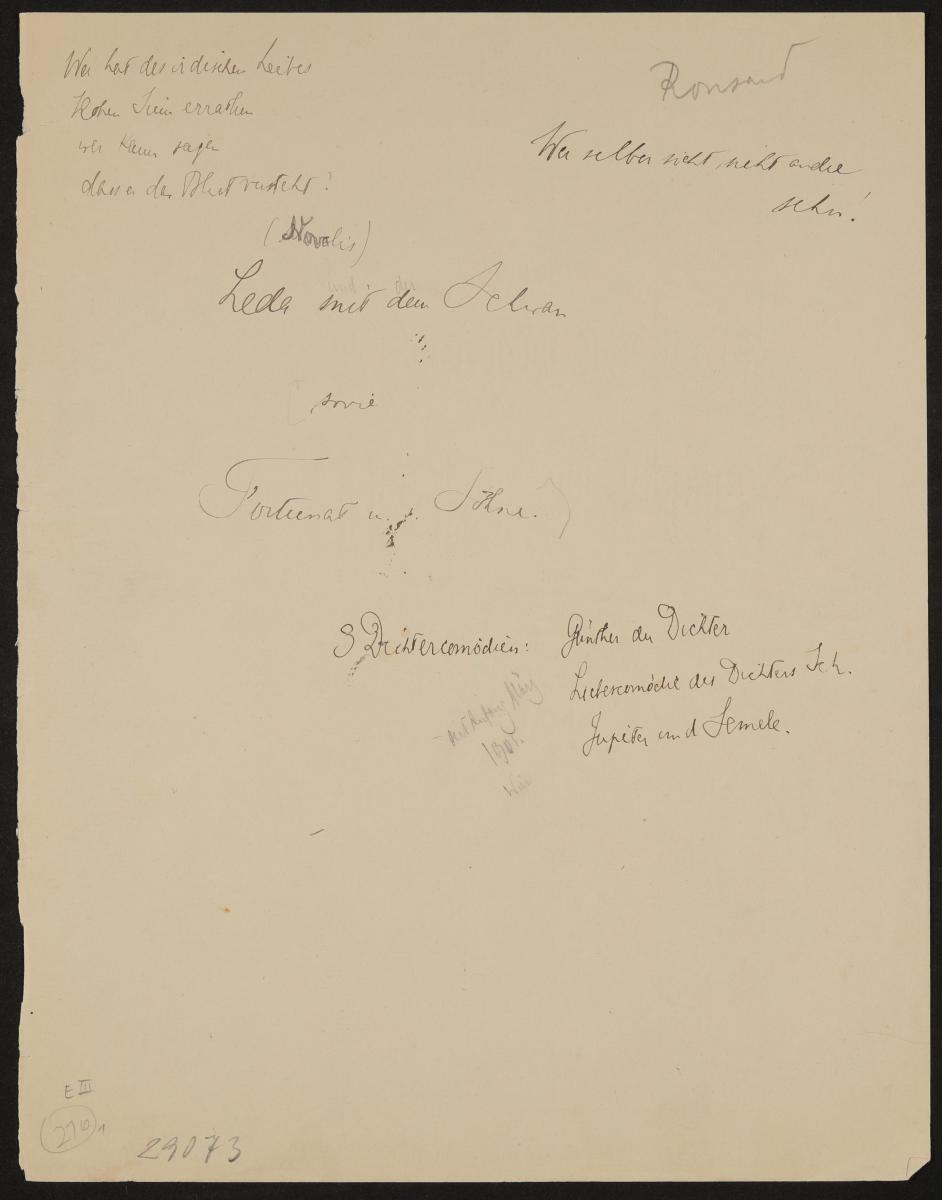 Wer hat des irdischen Leibes
Hohen Sinn errathen
wer kann sagen
dass er das Blut versteht?
(Novalis)
Ronsard
Wer selber sieht, sieht andre
sehn!
und der
Leda mit dem Schwan
sowie
Fortunat u. s. Söhne.)
3 Dichtercomödien: Günther der Dichter
Liebescomödie des Dichters Sch.
Jupiter und Semele.
März
Wien
E III
216 1
29073